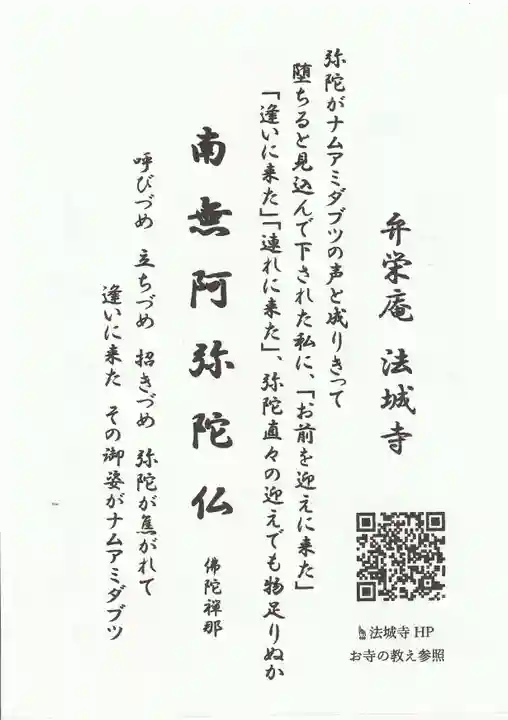 弁栄庵 法城寺
弥陀がナムアミダブツの声と成りきって
堕ちると見込んで下された私に、「お前を迎えに来た」
「逢いに来た」「連れに来た」、弥陀直々の迎えでも物足りぬか
南無阿弥陀仏
佛陀禅那
呼びづめ 立ちづめ 招きづめ 弥陀が焦がれて
逢いに来た その御姿がナムアミダブツ
法城寺 HP
お寺の教え参照